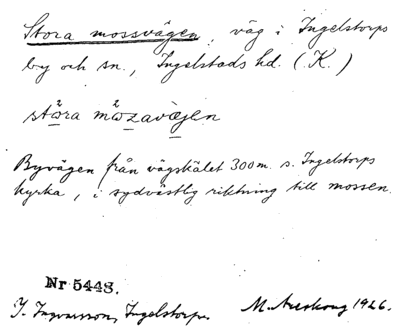 Stora mossvägen, väg i Ingelstorps
by och sn., Ingelstads hd. (K.)
Byvägen från vägskälet 300 m. s. Ingelstorps
kyrka, i sydvästlig riktning till mossen.
Nr 5448.
Ingvarsson, Ingelstorp. M. 1926.